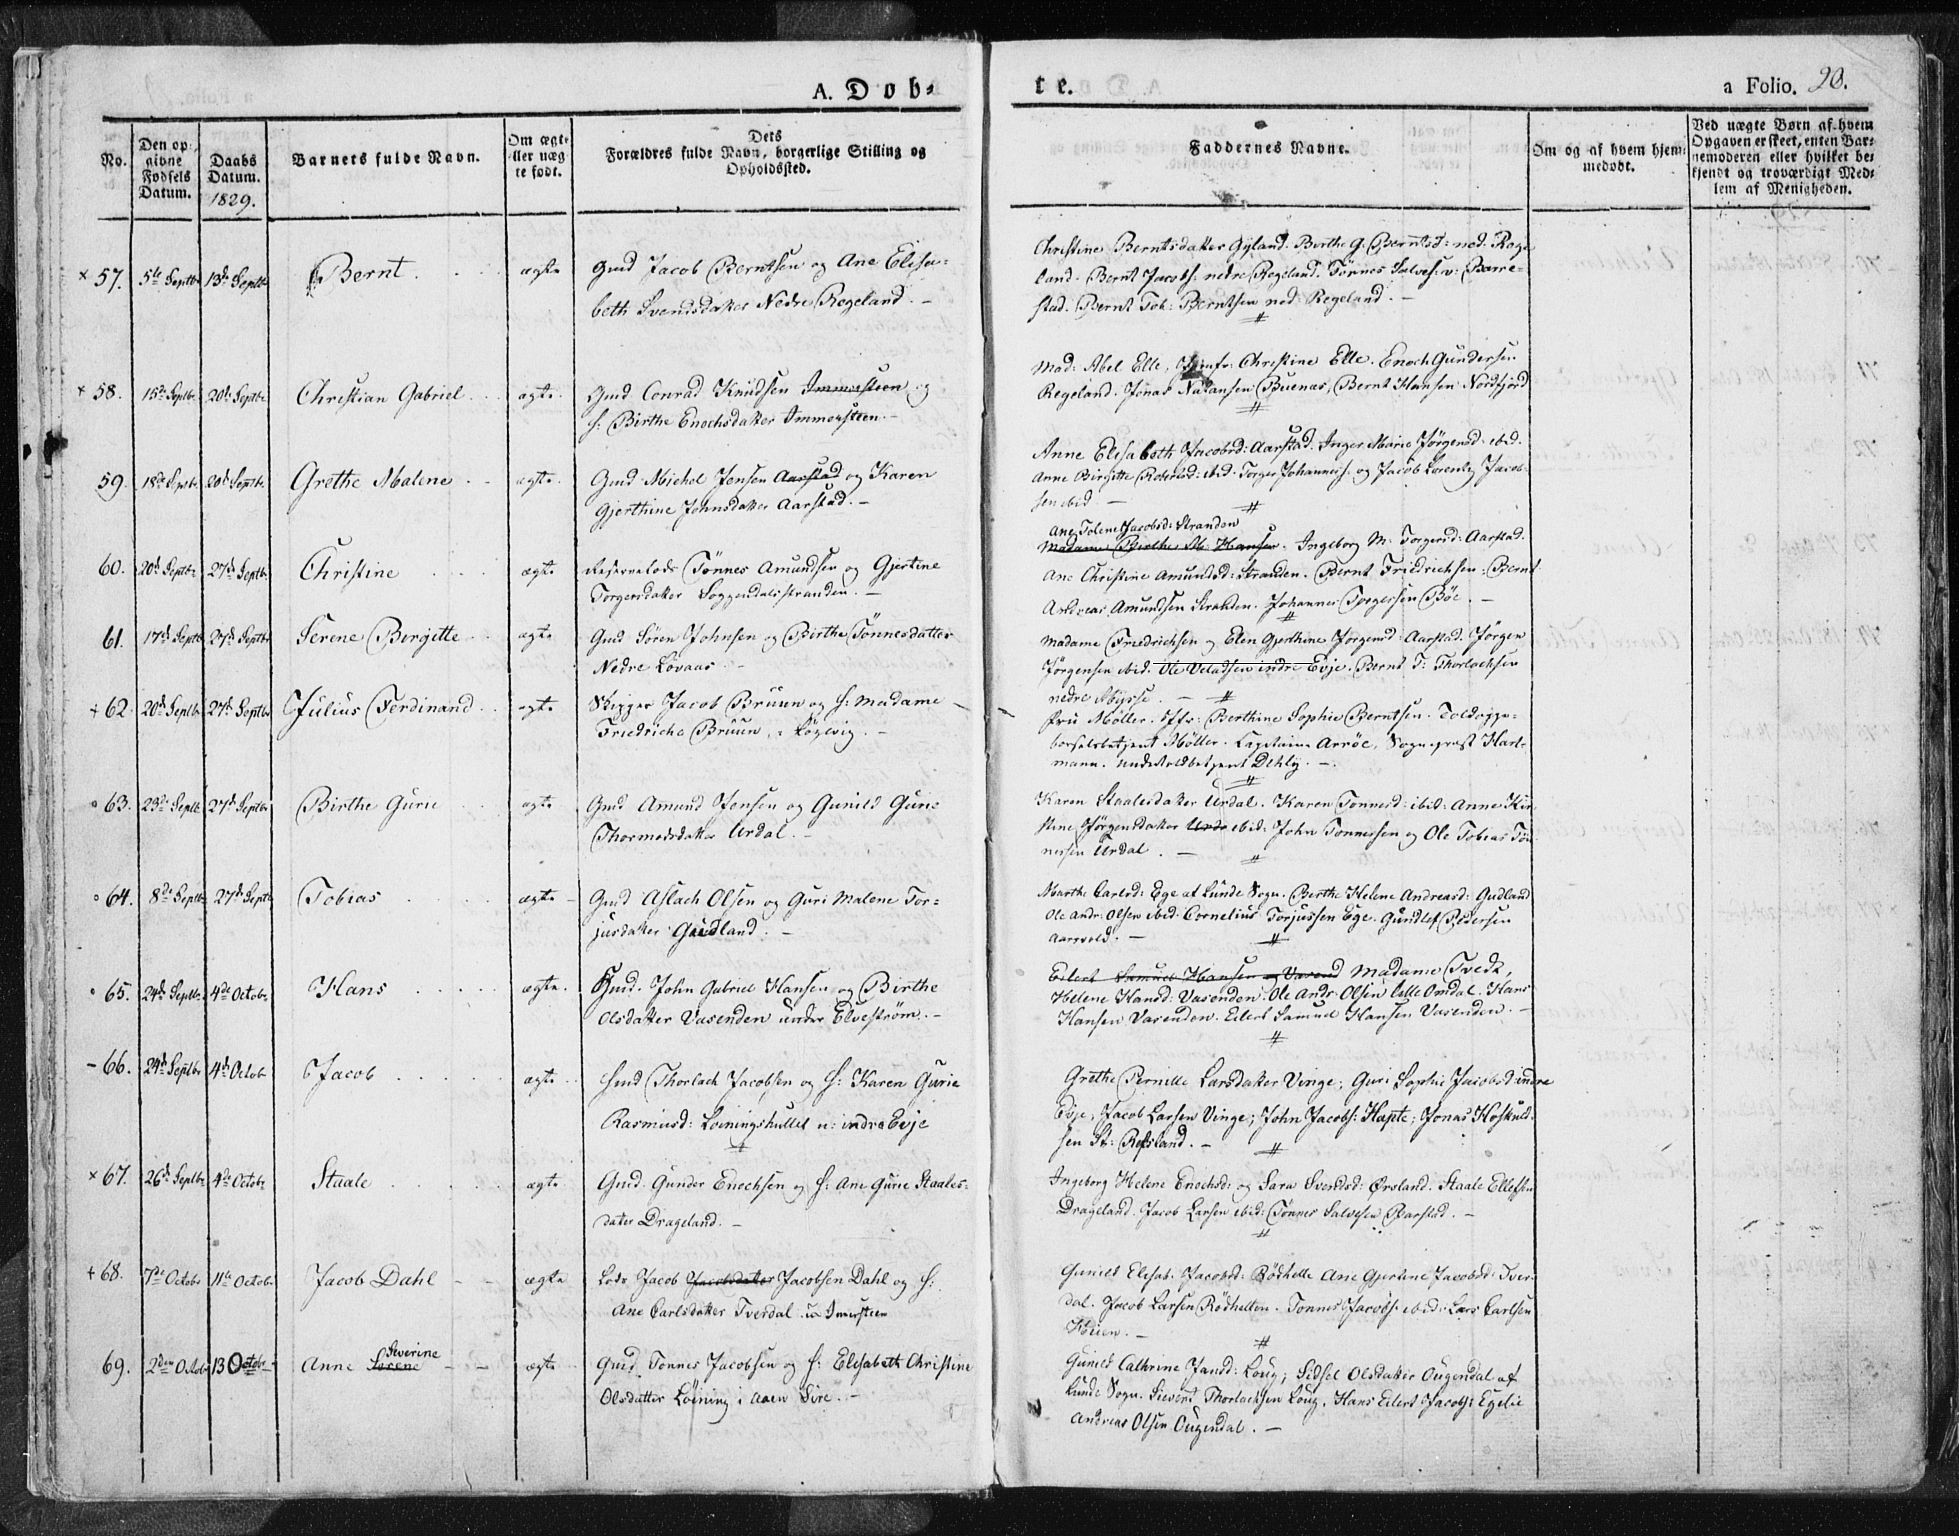 A. Dob-
te.
a Folio. 20.
No.
Den op-
givne
Fødsels
Datum.
Daabs
Datum.
1829.
Barnets fulde Navn.
Om ægte
eller uæg
te født.
Dets
Forældres fulde Navn, borgerlige Stilling og
Opholdssted.
Faddernes Navne.
Om og af hvem hjem-
medøbt.
Ved uægte Børn af hvem
Opgaven er skeet, enten Bar-
nemoderen eller hvilket be-
kjendt og troværdigt Med-
lem af Menigheden.
× 57. 5te Septbr 13de Septbr Bernt ægte Gmd Jacob Berntsen og Ane Elisa-
beth Svendsdatter Nedre Regeland. –
Christine Berntsdatter Gyland. Berthe G. Berntsd: ned. Rege
land. Bernt Jacobs. nedre Regeland. Tønnes Salves. v: Barre-
stad. Bernt Tob: Berntsen ned: Regeland. –
× 58. 15de Septbr 20de Septbr Christian Gabriel ægte Gmd Conrad Knudsen Immersteen og
h: Birthe Enochsdatter Immersteen. –
Mad: Abel Elle, Jomfr: Christine Elle. Enoch Gundersen
Regeland. Jonas Natansen Buenæs, Bernt Hansen Nordfjord
59. 18de Septbr 20de Septbr Grethe Malene ægte Gmd Michel Jensen Aarstad og Karen
Gjerthine Johnsdatter Aarstad. –
Anne Elisabeth Jacobsd: Aarstad. Inger Marie Jörgensd: ibid.
Anne Birgitte Robertsd: ibid: Torger Johanness. og Jacob Lorentz Jacob-
sen ibid –
60. 20de Septbr 27de Septbr Christine ægte Reservelods Tönnes Amundsen og Gjertine
Torgersdatter Soggendalsstranden. –
Ane Tolene Jacobsd: Stranden
Madame Birthe M: Hansen. Ingeborg M: Torgersd: Aarstad.
Ane Christine Amundsd: Stranden. Bernt Friedrichsen. Bernt
Andreas Amundsen Stranden. Johannes Torgersen Böe. –
61. 17de Septbr 27de Septbr Serene Birgitte ægte Gmd Sören Johnsen og Birthe Tönnesdatter
Nedre Lovaas –
Madame Friedrichsen og Elen Gjerthine Jörgensd: Aarstad. Jörgen
Jörgensen ibid. Ole Veladsen indre Evje. Bernt T: Thorlachsen
nedre Mysse. –
+ 62. 20de Septbr 27de Septbr Julius Ferdinand ægte Skipper Jacob Bruun og h: Madame
Friedriche Bruun, i Rægevig. –
Fru Möller. Jfr: Berthine Sophie Berntsen. Toldoppe-
börselsbetjent Möller. Capitaine Arröe, Sognepræst Hart-
mann. Undertoldbetjent Dehly. –
63. 23de Septbr 27de Septbr Birthe Gurie ægte Gmd Amund Jensen og Gunild Gurie
Thormodsdatter Urdal. –
Karen Staalesdatter Urdal. Karen Tonnesd: ibid: Anne Kir-
stine Jörgensdatter Urda ibid: John Tonnessen og Ole Tobias Tön
nesen Urdal. –
64. 8de Septbr 27de Septbr Tobias ægte Gmd Aslach Olsen og Guri Malene Tor-
jusdatter Gudland. –
Marthe Carlsd: Ege af Lunde Sogn. Berthe Helene Andreasd: Gudland
Ole Andr: Olsen ibid: Cornelius Torjussen Ege. Gundlef Pedersen
Aarsvold. –
65. 24de Septbr. 4de Octobr Hans ægte. Gmd. John Gabriel Hansen og Birthe
Olsdatter Vasenden under Elveström. –
Eilert Samuel Hansen Vasend Madame Tvedt,
Helene Hansd: Vasenden. Ole Andr. Olsen lille Omdal. Hans
Hansen Vasenden. Eilert Samuel Hansen Vasenden. –
– 66. 24de Septbr 4de Octob Jacob ægte Hmd Thorlach Jacobsen og h: Karen Gurie
Rasmusd: Loiningshullet u: indre Evje
Grethe Pernille Larsdatter Vinge; Guri Sophie Jacobsd: indre
Evje, Jacob Larsen Vinge; John Jacobs: Hapte; Jonas Hoskuld-
sen St: Refsland. –
× 67. 26de Septbr 4de Octobr Staale ægte Gmd. Gunder Enochsen og h: Ane Gurie Staales-
dater Drageland. –
Ingeborg Helene Enochsd: og Sara Svendsd: Ørsland. Staale Ellefsen
Drageland. Jacob Larsen ibid: Tönnes Salvesen Barstad. –
+ 68. 7de Octobr 11te Octobr Jacob Dahl ægte Lods Jacob Jacobsdatter Jacobsen Dahl og h:
Ane Carlsdatter Tverdal. u: Imersteen
Gunild Elisab. Jacobsd: Rödhelle Ane Gjertine Jacobsd: Tver-
dal. Jacob Larsen Rödhelten. Tonnes Jacobs: ibid: Lars Carlsen
Höien. –
69. 2den Octobr 13 Octobr Anne Severine Serene ægte Gmd. Tonnes Jacobsen og h: Elisabeth Christine
Olsdatter Löining i Aaen Sire. –
Gunild Cathrine Jansd: Loug; Sidsel Olsdatter Ougendal af
Lunde Sogn. Sievert Thorlachsen Loug. Hans Eilert Jacobs: Egelie
Andreas Olsen Ougendal. –